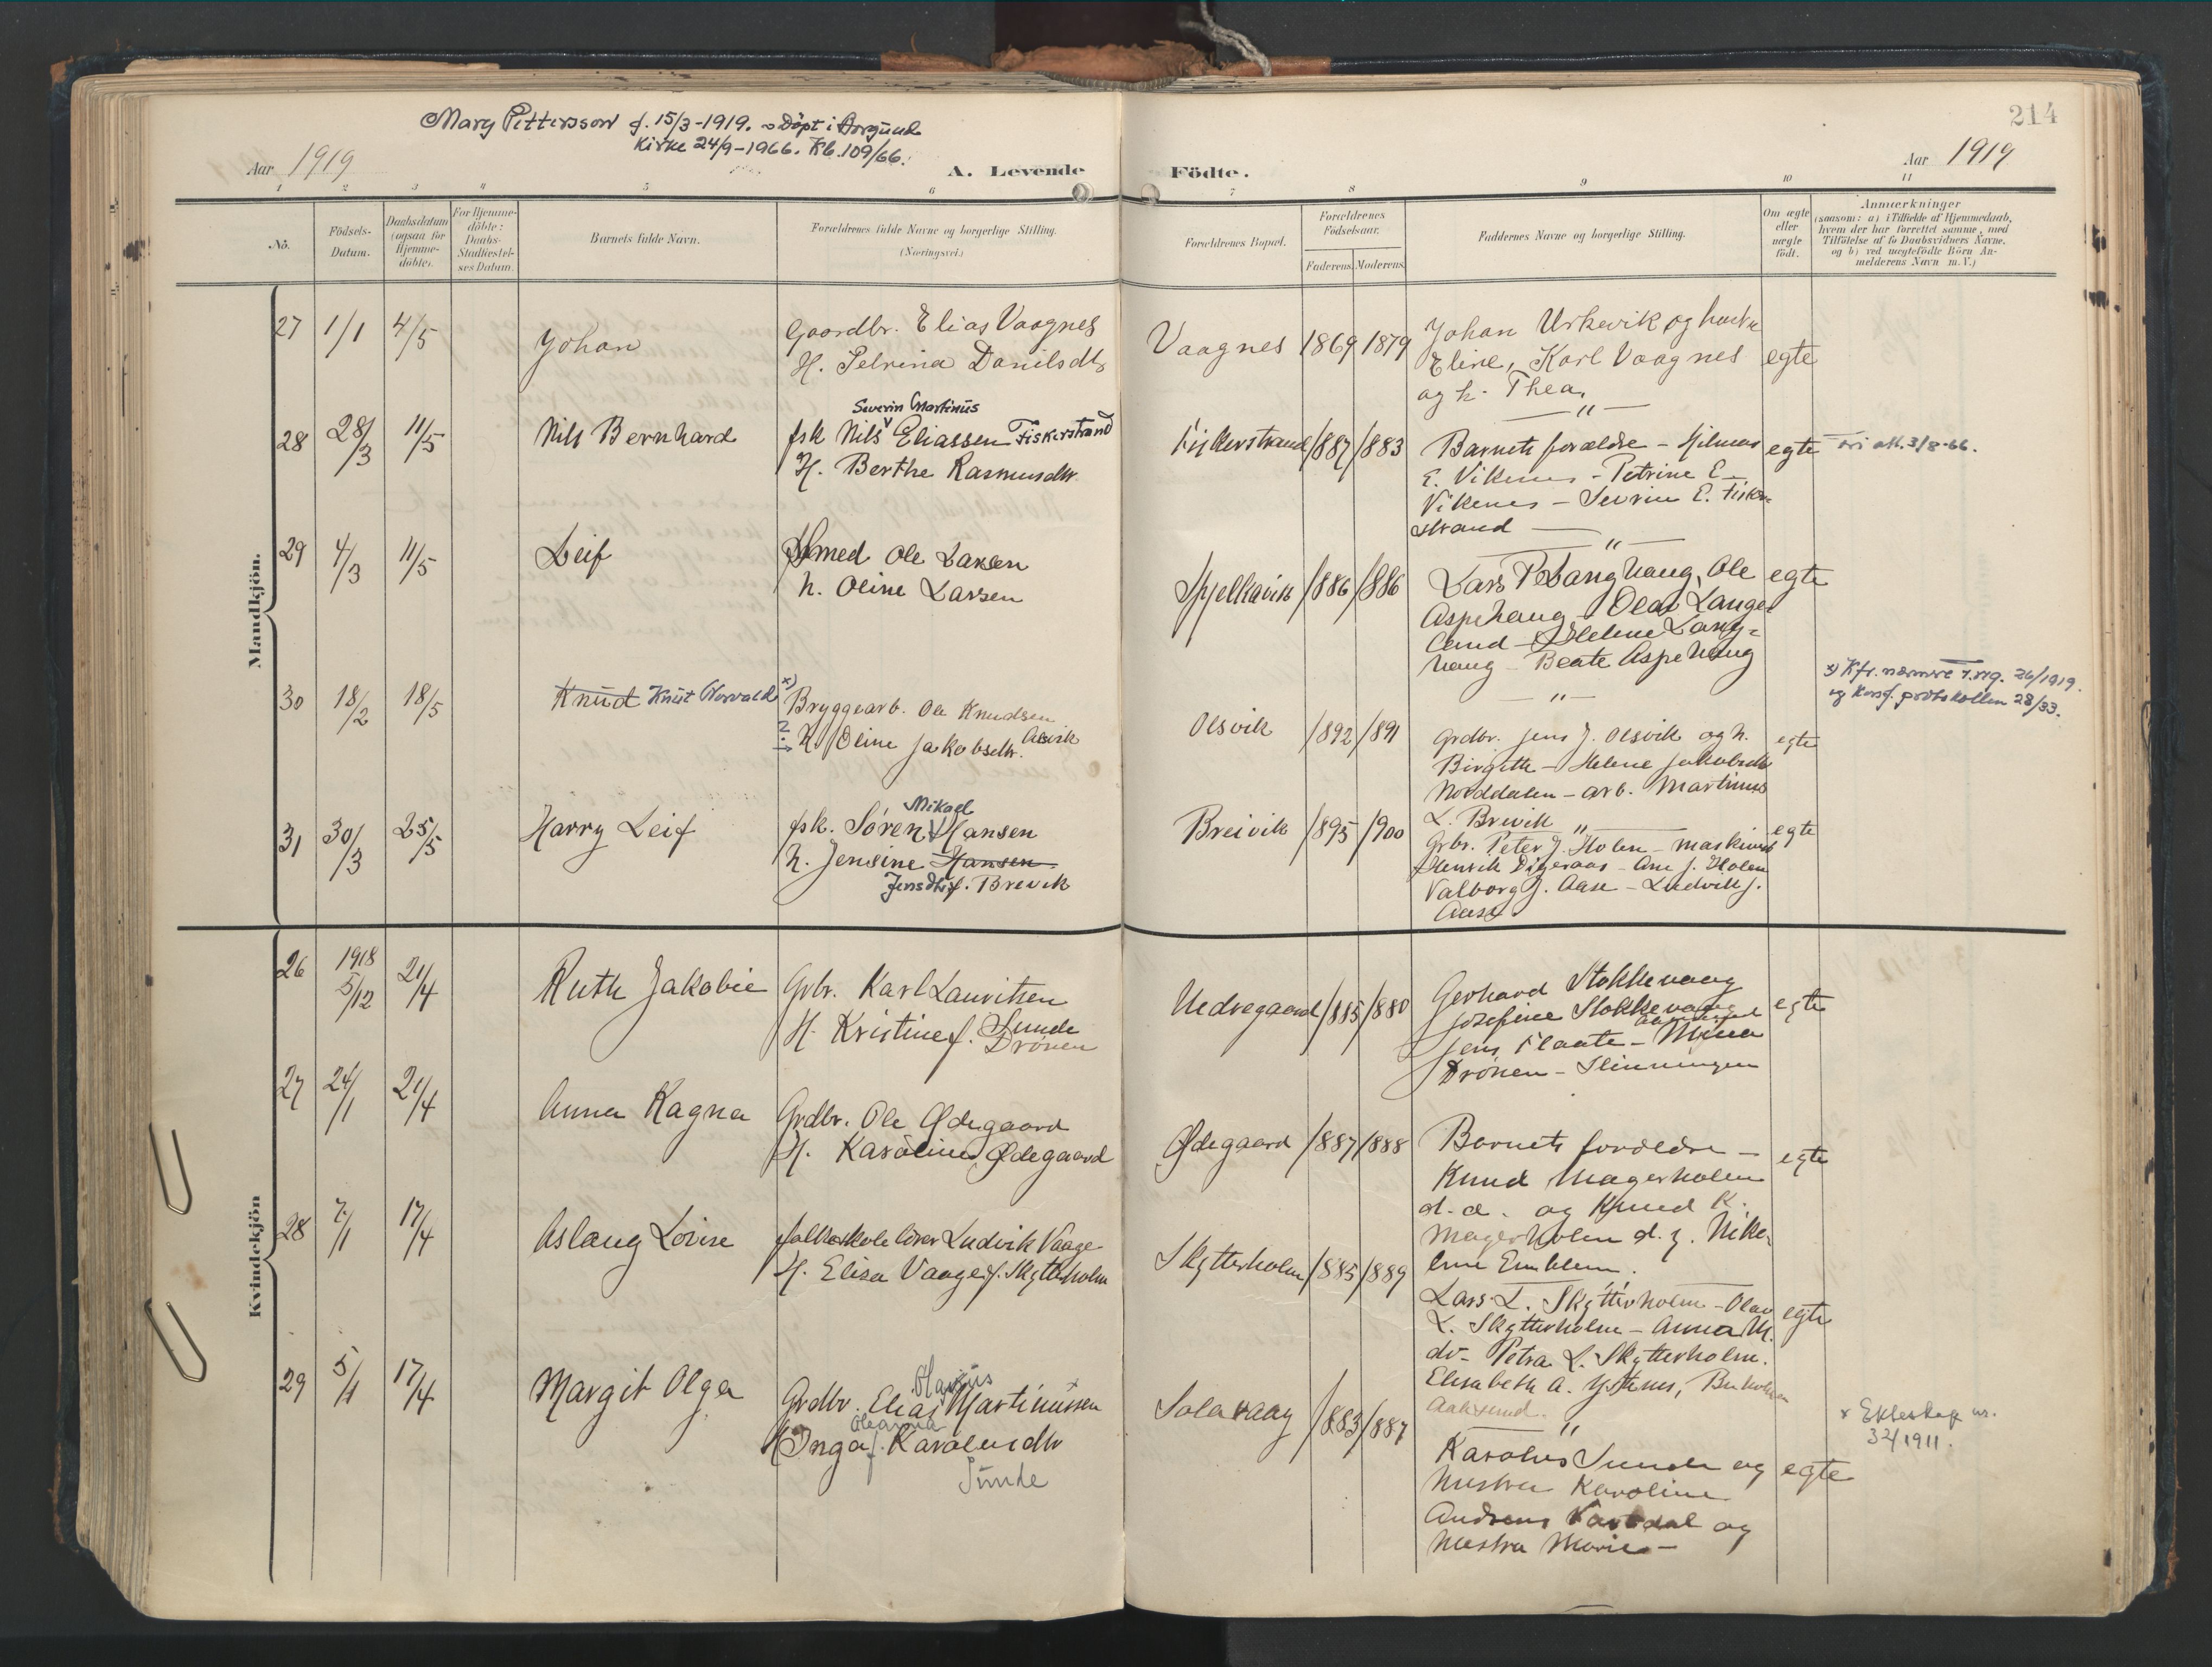 214
Mary Pettersson f. 15/3-1919. Döpt i Borgund
Kirke 24/9-1966. Kb. 109/66.
Aar 1919
A. Levende Födte.
Aar 1919
1 2 3 4 5 6 7 8 9 10 11
No.
Födsels-
Datum.
Daabsdatum
(ogsaa for
Hjemme-
döbte).
For Hjemme-
döbte:
Daabs-
Stadfæstel-
ses Datum.
Barnets fulde Navn.
Forældrenes fulde Navne og borgerlige Stilling.
(Næringsvei.)
Forældrenes Bopæl.
Forældrenes
Födselsaar.
Faderens. Moderens.
Faddernes Navne og borgerlige Stilling.
Om ægte
eller
uægte
födt.
Anmærkninger
(saasom: a) i Tilfælde af Hjemmedaab,
hvem der har forrettet samme, med
Tilföielse af to Daabsvidners Navne,
og b) ved uægtefödte Börn An-
melderens Navn m. V.)
Mandkjön.
27 1/1 4/5 Johan
Gaardbr. Elias Vaagnes
H. Petrina Danilsdtr
Vaagnes 1869 1879
Johan Urkevik og hustru
Eline, Karl Vaagnes
og h. Thea.
egte
28 28/3 11/5 Nils Bernhard
Severin Martinus
fsk Nils Eliassen Fiskerstrand
H. Berthe Rasmusdtr
Fiskerstrand 1887 1883
Barnets forældre - Hilmar
E. Vikenes - Petrine E
Vikenes - Sevrin E. Fisker-
strand
egte
att. 3/8-66.
29 4/3 11/5 Leif
Smed Ole Larsen
h. Oline Larsen
Spjelkavik 1886 1886
Lars P. Langhaug, Ole
Aspehaug - Olai Lange
land - Helene Lang-
haug - Beate Aspehaug
egte
30 18/2 18/5 Knud Knut Norvald x)
Bryggearb. Ole Knudsen
h. Oline Jakobsdtr. Olsvik
Olsvik 1892 1891
Grdbr. Jens J. Olsvik og h.
Birgitte - Helene Jakobsdtr
Norddalen - arb. Martinus
L. Brevik
egte
x) Kfr. nærmere f. reg. 26/1919.
og konf. protokollen 28/33.
31 30/3 25/5 Harry Leif
Mikael
fsk. Sören Hansen
h. Jensine Hansen
Jensdtr f. Brevik
Breivik 1895 1900
Grbr. Peter J. Holen - maskinist
Henrik Digeraas - Ane J. Holen
Valborg J. Aase - Ludvik J.
Aase.
egte
Kvindekjön
26 1918 5/12 21/4 Ruth Jakobie
Grbr. Karl Lauritsen
H. Kristine f. Sunde
Drönen
Nedregaard 1885 1880
Gerhard Stokkevaag
Josefine Stokkevaag
Jens Flaate - Mina
Drönen - Slinningen
egte
27 24/1 21/4 Anna Ragna
Grdbr. Ole Ødegaard
H. Karoline Ødegaard
Ødegaard 1887 1888
Barnets forældre -
Knud Magerholm
d. e. og Knud K.
Magerholm d. y. Nike-
line Emblem.
egte
28 7/1 17/4 Aslaug Lovise
folkeskolelærer Ludvik Vaage
H. Elisa Vaage f. Skytterholm
Skytterholm 1885 1889
Lars L. Skytterholm - Olav
L. Skytterholm - Anna M.
do - Petra L. Skytterholm.
Elisabeth A.
Aaksund.
egte
29 5/1 17/4 Margit Olga
Markus
Grdbr. Elias Martinussen x
Oleanna
H. Inga f. Karolusdtr
Sunde
Solevaag 1883 1887
Karolus Sunde og
hustru Karoline
Andreas Vartdal og
hustru Marie -
egte
x Ekteskap nr.
32/1911.